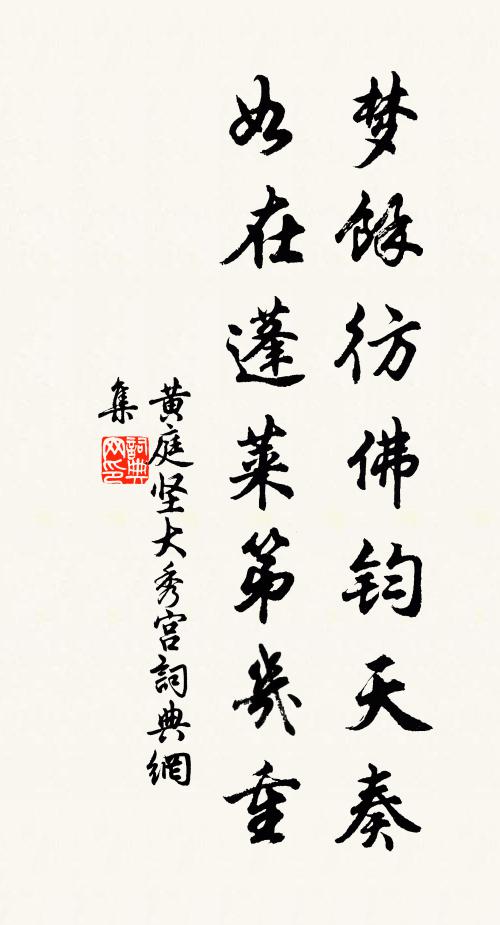 梦馀彷佛钧天奏
如在蓬莱第幾重
黄庭坚大秀宫詞典網
集
詞典网印